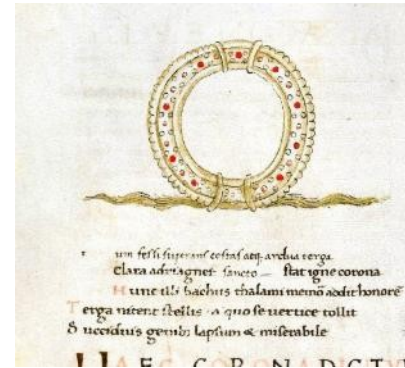 um fessi superans costas atq; ardua terga
Clara adriagnet sancto – stat igne corona
Hunc illi bachus thalami memor addit honorē
Terga nitent stellis · a quo se vertice tollit
& succiduis genib; lapsum & miserabile
HAEC CORONA DICT